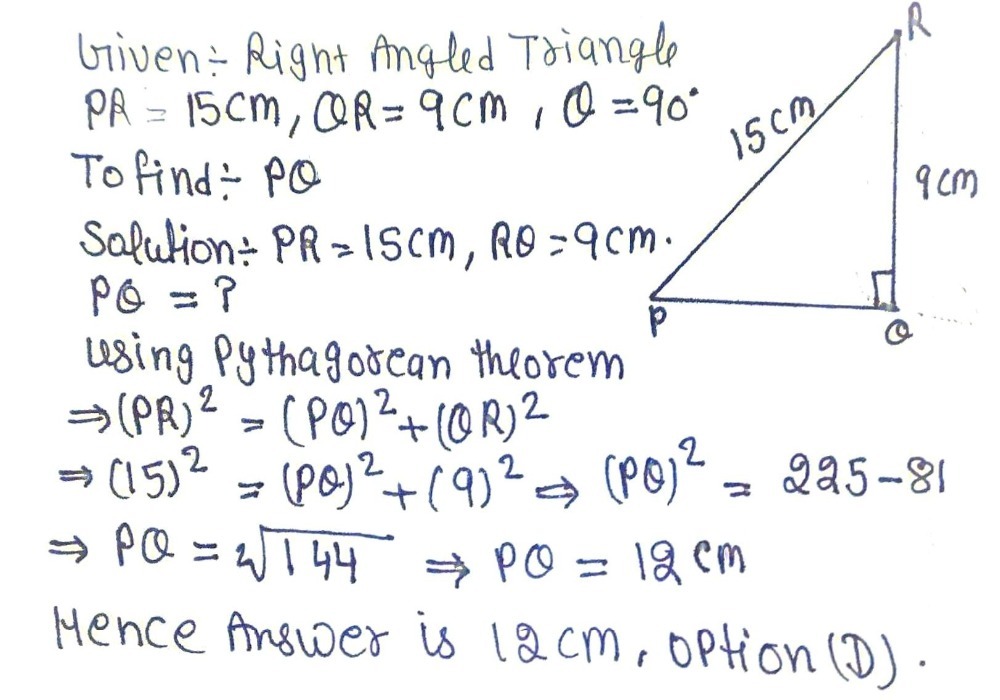 Given:- Right Angled Triangle
PR = 15cm, QR = 9cm, Q = 90°
To find:- PQ
Solution:- PR = 15cm, RQ = 9cm.
PQ = ?
using Pythagorean theorem
⇒ (PR)² = (PQ)² + (QR)²
⇒ (15)² = (PQ)² + (9)² ⇒ (PQ)² = 225-81
⇒ PQ = 2√144 ⇒ PQ = 12 cm
Hence Answer is 12cm, option (D).
R
15cm
9cm
P
Q